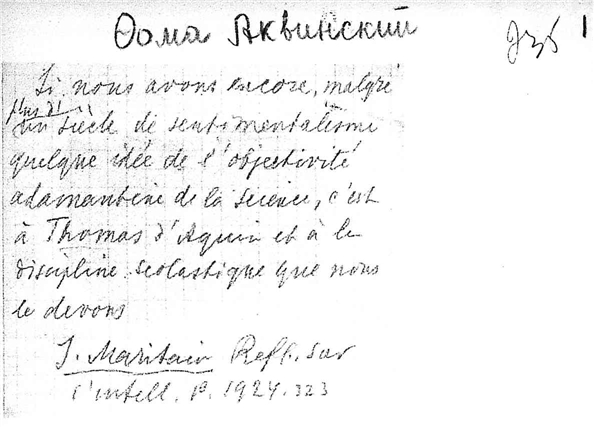 Ѳома Аквинскій
1
Si nous avons encore, malgré
plus d'
un siècle de sentimentalisme
quelque idée de l'objectivité
adamantine de la science, c'est
à Thomas d'Aquin et à la
discipline scolastique que nous
le devons
J. Maritain Refl. sur
l'intell. P. 1924. 323